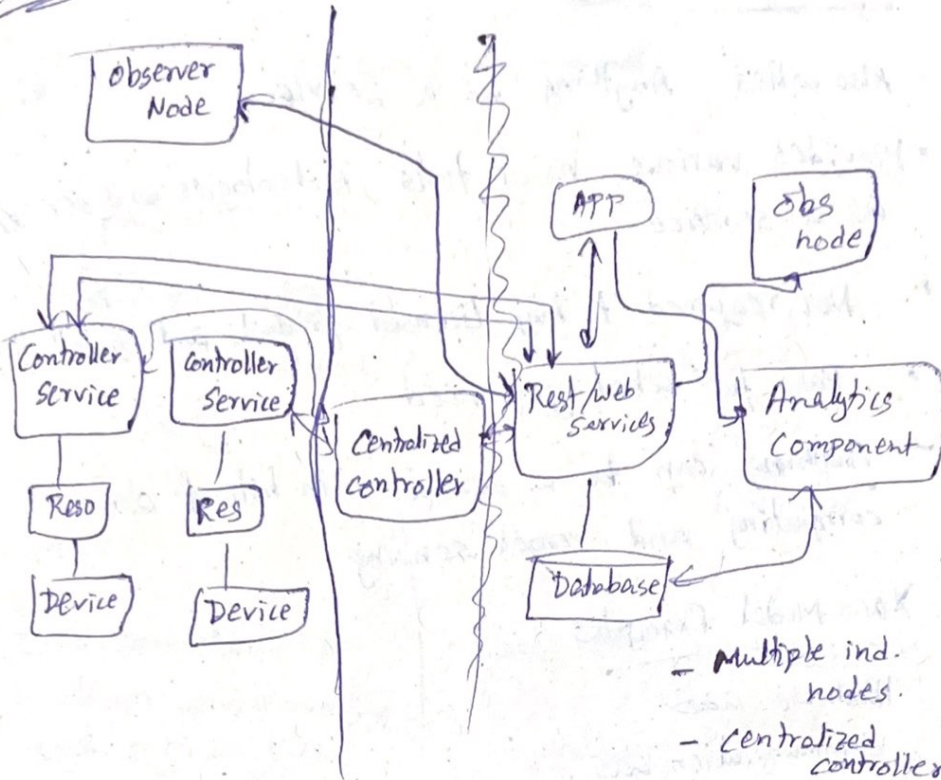 Observer
Node
APP
Obs
node
Controller
Service
Controller
Service
Centralized
Controller
Rest/Web
Services
Analytics
Component
Reso
Res
Device
Device
Database
- Multiple ind.
nodes.
- Centralized
controller